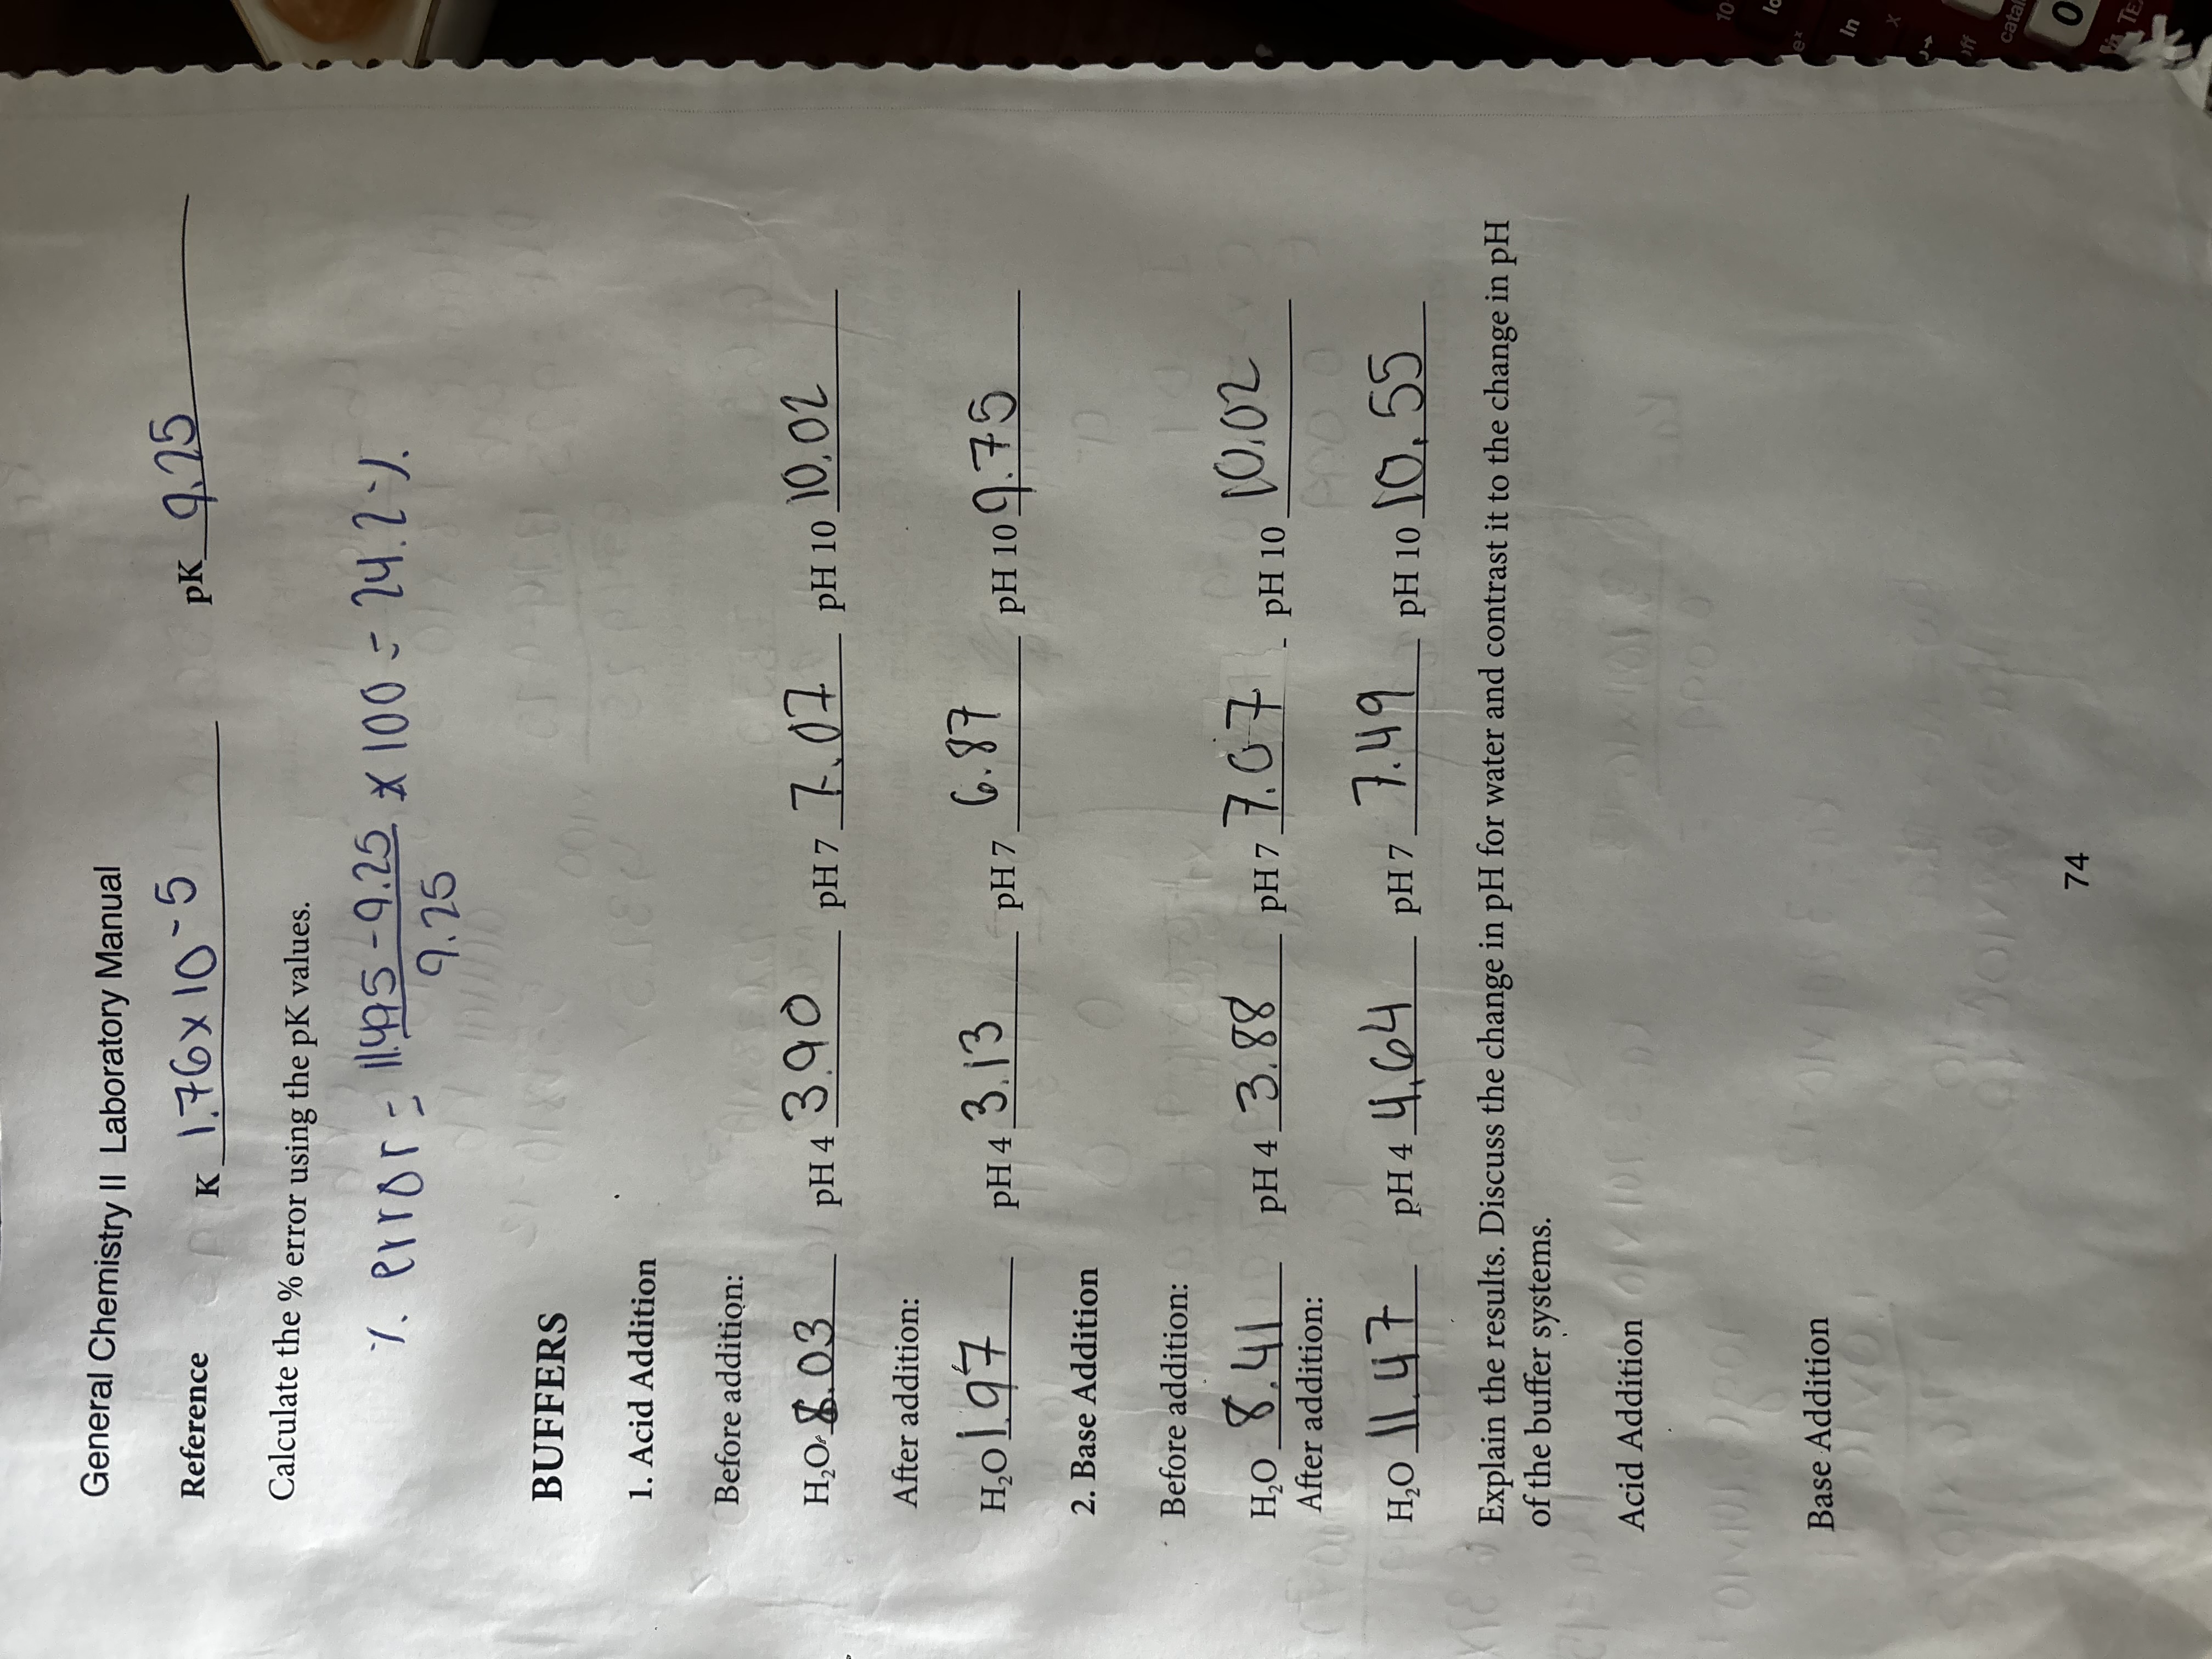 General Chemistry II Laboratory Manual
Reference K 1.76 x 10⁻⁵ pK 9.25
Calculate the % error using the pK values.
% error = 11.495 - 9.25 x 100 = 24.2 %
9.25
BUFFERS
1. Acid Addition
Before addition:
H₂O 8.03 pH 4 3.90 pH 7 7.07 pH 10 10.02
After addition:
H₂O 1.97 pH 4 3.13 pH 7 6.87 pH 10 9.75
2. Base Addition
Before addition:
H₂O 8.41 pH 4 3.88 pH 7 7.07 pH 10 10.02
After addition:
H₂O 11.47 pH 4 4.64 pH 7 7.49 pH 10 10.55
Explain the results. Discuss the change in pH for water and contrast it to the change in pH
of the buffer systems.
Acid Addition
Base Addition
74
10
eˣ
ln
x
off
catal
0